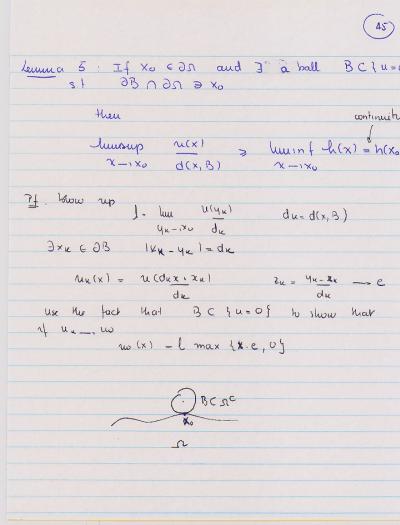 45
Lemma 5 : If x₀ ∈ ∂Ω and ∃ a ball B ⊂ { u =
s.t ∂B ∩ ∂Ω ∋ x₀
then
continuity
limsup x→x₀ u(x) / d(x,B) ≥ liminf x→x₀ h(x) = h(x₀
Pf. blow up l = lim yₖ→x₀ u(yₖ) / dₖ dₖ = d(x,B)
∃ xₖ ∈ ∂B |xₖ - yₖ| = dₖ
uₖ(x) = u(dₖx + xₖ) / dₖ zₖ = yₖ - xₖ / dₖ → e
use the fact that B ⊂ {u=0} to show that
if uₖ → u₀
u₀(x) = l max {x·e, 0}
B ⊂ Ωᶜ
x₀
Ω